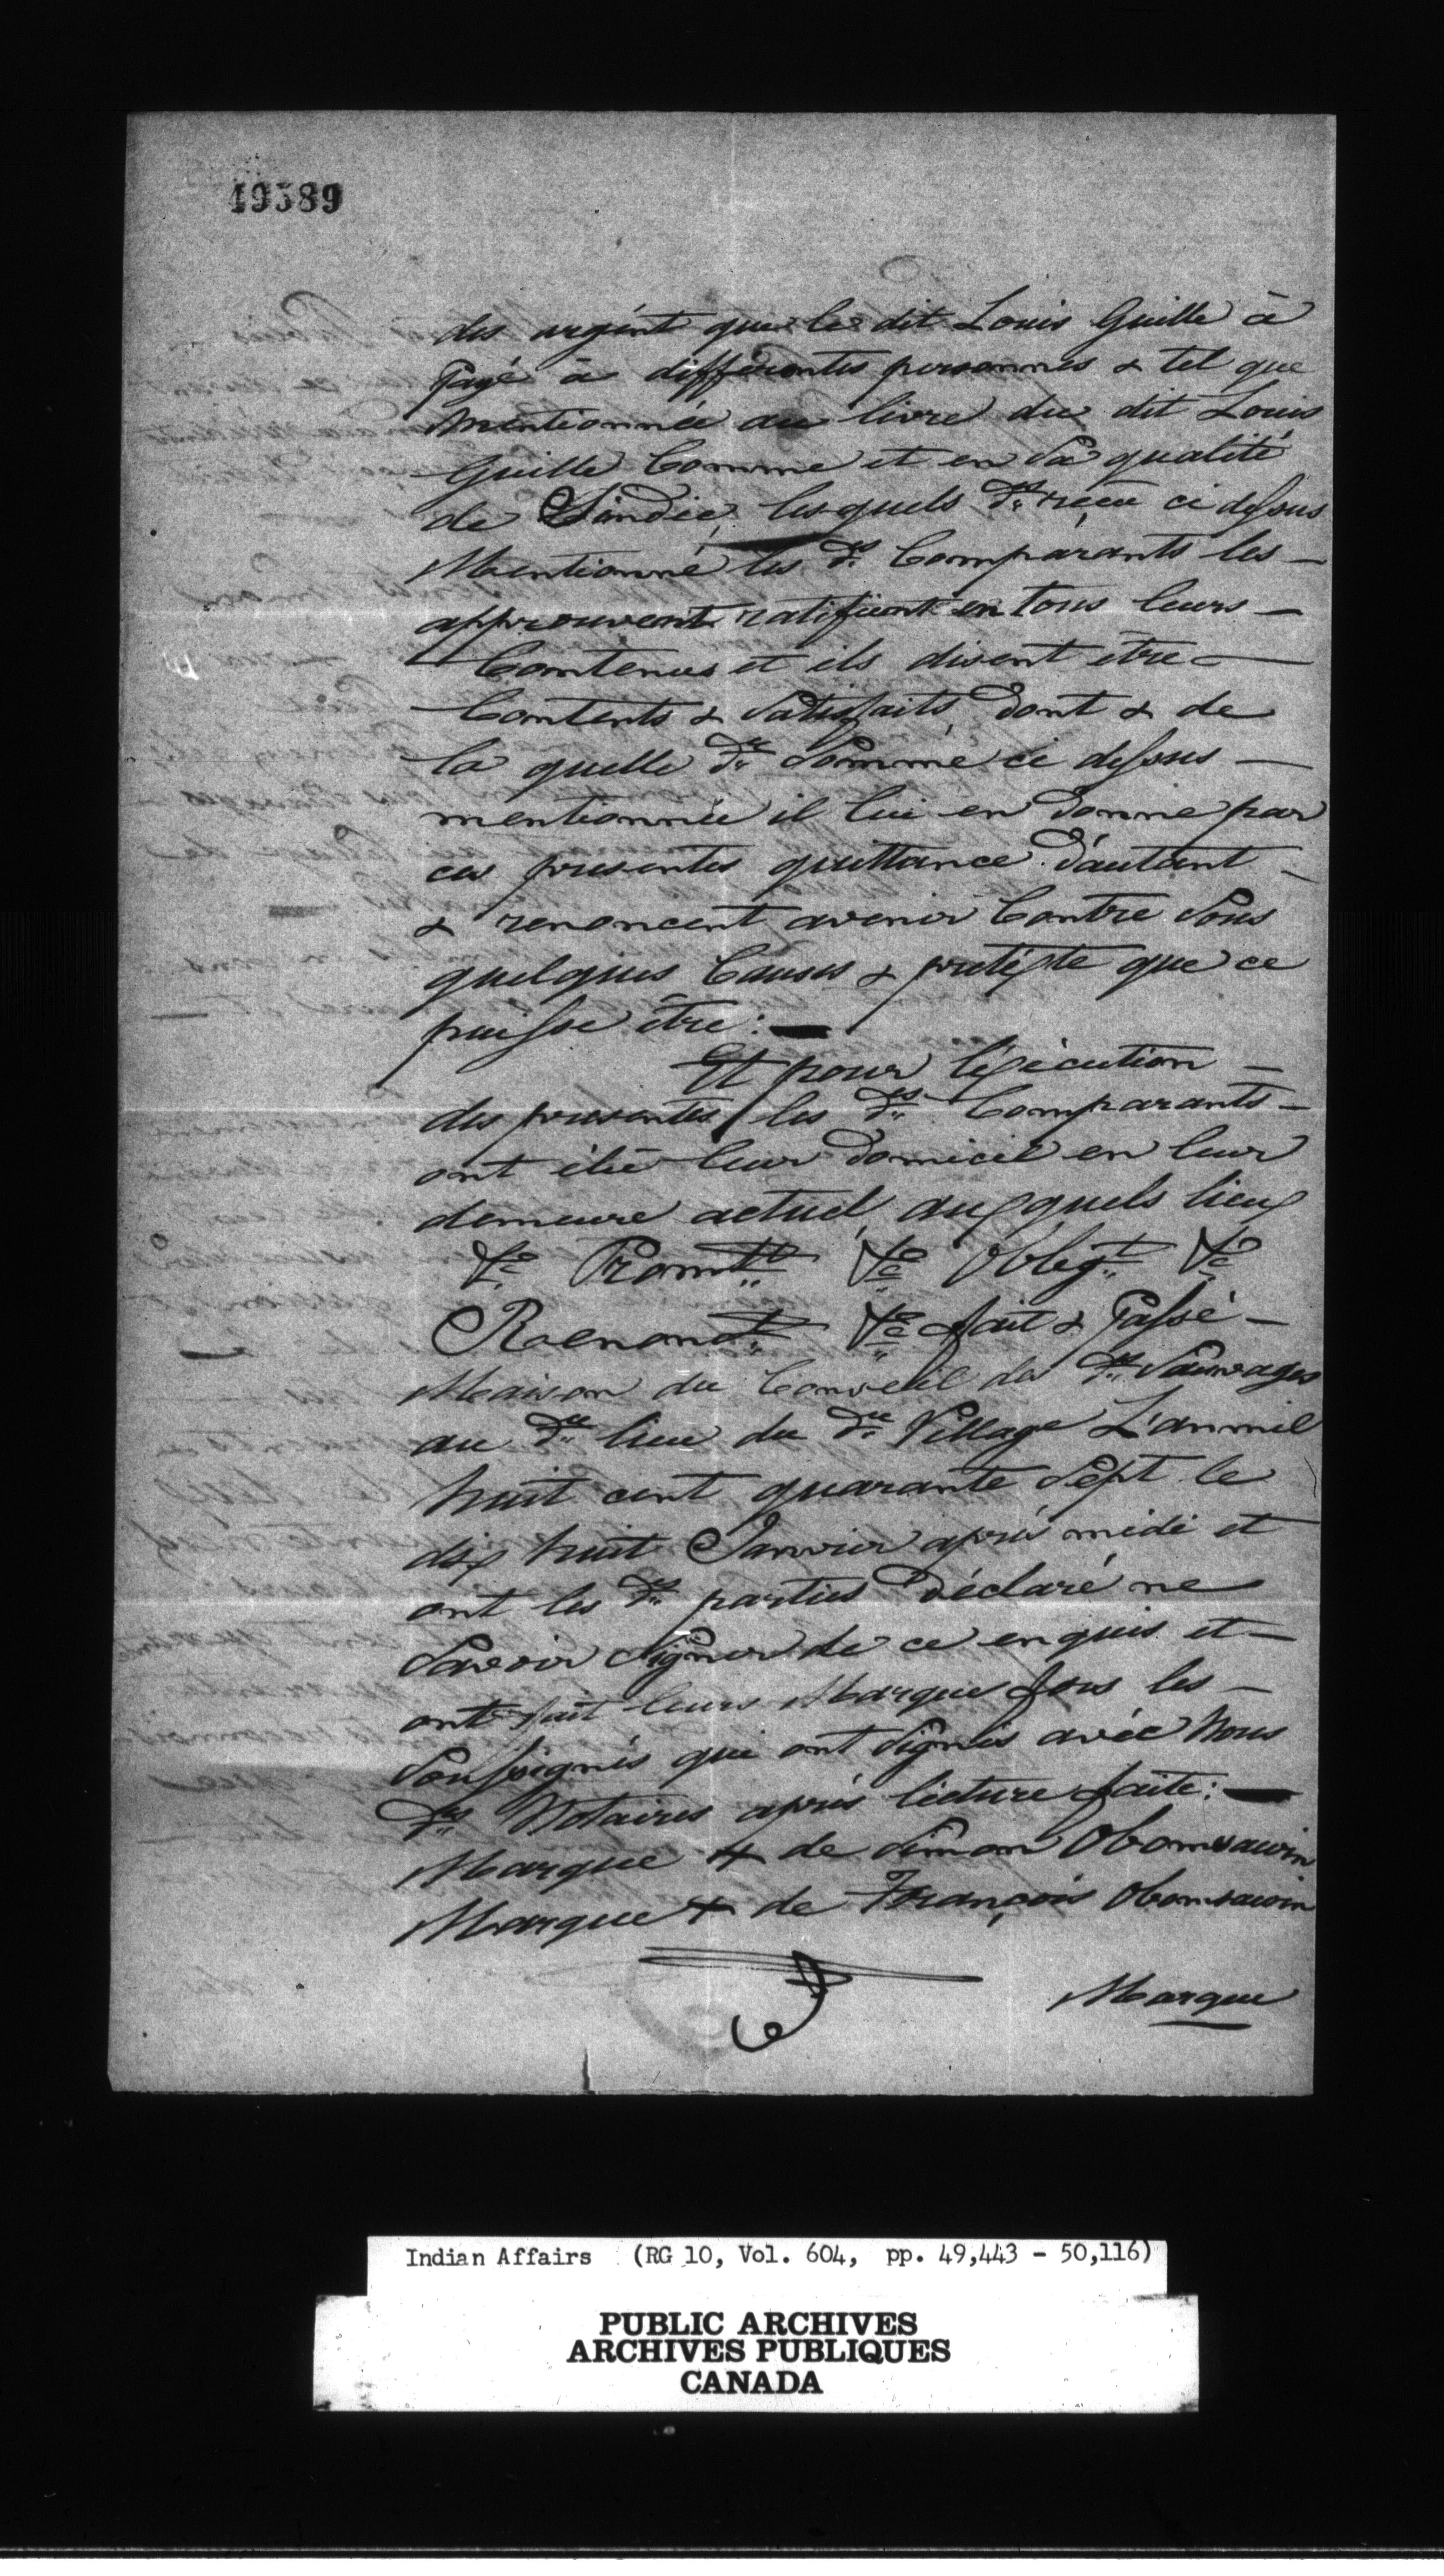 49389
des argént que le dit Louis Guille à
Payé à differentes personnes & tel que
mentionnée au livre du dit Louis
Guille Comme et en Sa qualité
de Sindic, lesquels ds. recu ci dessus
Mentionné les ds. Comparants les —
approuvent ratifient en tous leurs —
Contenus et ils disent etre —
Contents & Satisfaits, Dont & de
la quelle de. Somme ci dessus —
mentionnée il lui en Donne par
ces presentes quittance d'autant —
& renoncent avenir Contre Sous
quelques Causes & pretexte que ce
puisse être: —
Et pour l'éxécution —
des presentes, les ds. Comparants —
ont élu leur Domicil en leur
demeure actuel auxquels lieux
&c Promtt. &c Obligt. &c
Renonct. &c fait & Passé —
Maison du Conseil des ds. Sauvages
au du. lieu du du. Village L'an mil
huit cent quarante Sept le
dix huit Janvier après midi et
ont les ds. parties Déclaré ne
Savoir Signer de ce enquis et —
ont fait leurs Marque Sous les —
Soussignés qui ont Signés avéc Nous
ds. Notaires après lecture faite: —
Marque + de Simon Obomsawin
Marque + de François Obomsawin
Marque
Indian Affairs (RG 10, Vol. 604, pp. 49,443 - 50,116)
PUBLIC ARCHIVES
ARCHIVES PUBLIQUES
CANADA